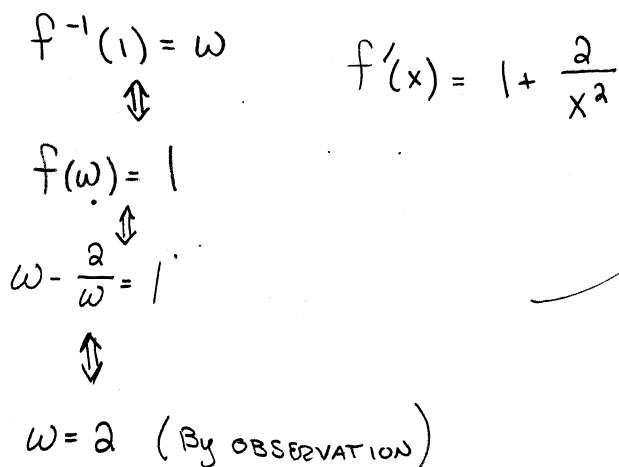 f⁻¹(1) = ω
⇕
f(ω) = 1
⇕
ω - 2/ω = 1
⇕
ω = 2 (By OBSERVATION)
f'(x) = 1 + 2/x²